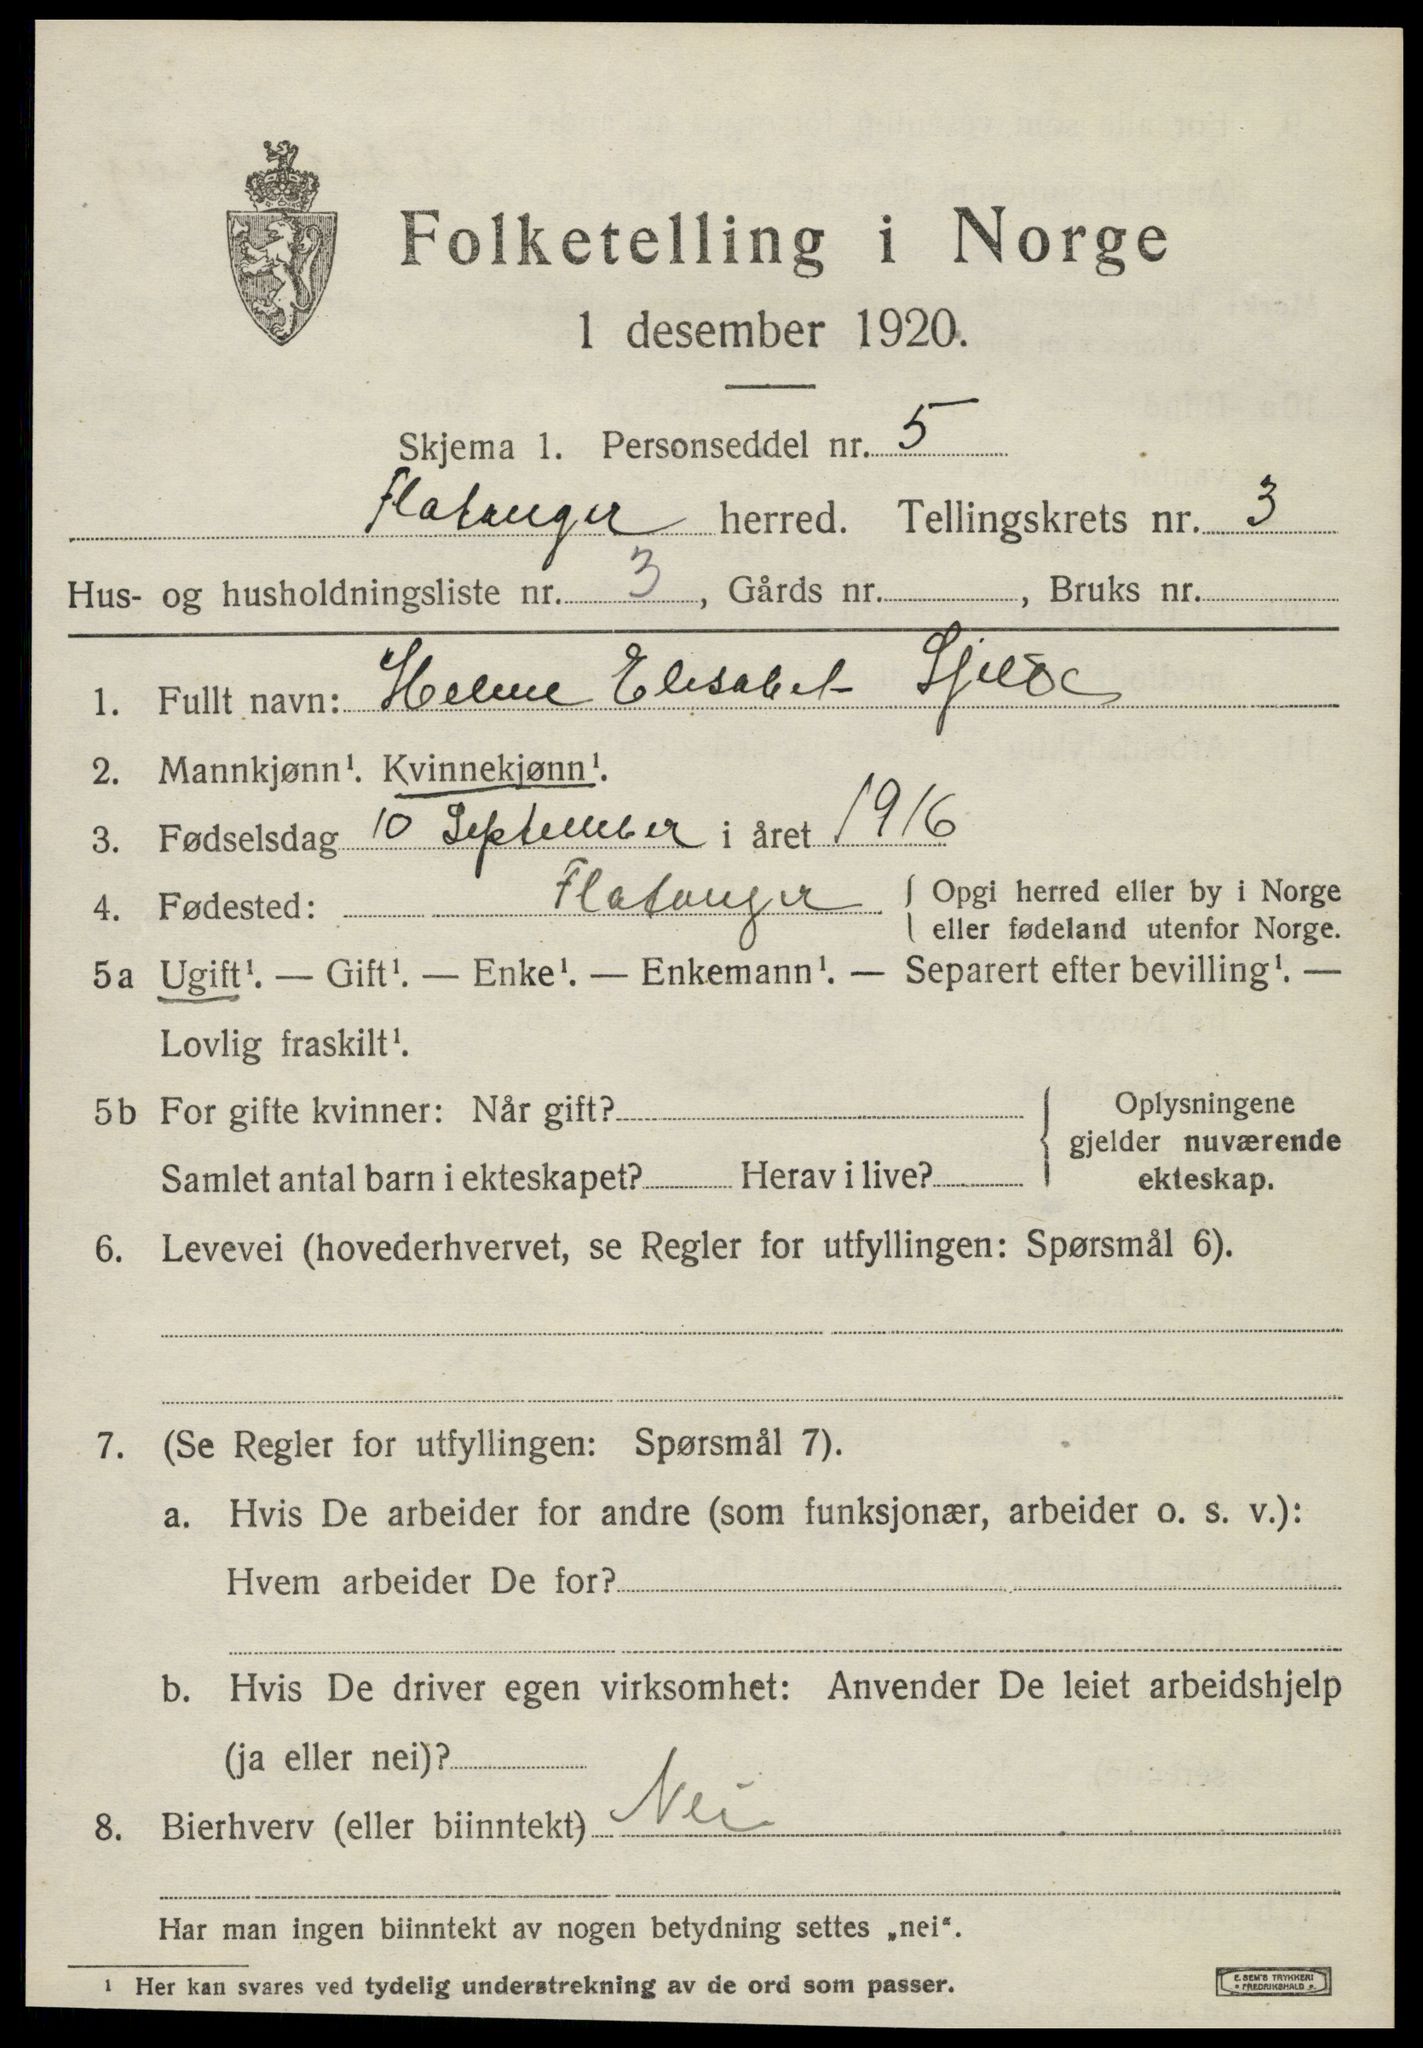 Folketelling i Norge
1 desember 1920.
Skjema 1. Personseddel nr. 5
Flatanger herred. Tellingskrets nr. 3
Hus- og husholdningsliste nr. 3, Gårds nr. , Bruks nr.
1. Fullt navn: Helene Elisabet
2. Mannkjønn¹. Kvinnekjønn¹.
3. Fødselsdag 10 September i året 1916
4. Fødested: Flatanger { Opgi herred eller by i Norge
eller fødeland utenfor Norge.
5a Ugift¹. — Gift¹. — Enke¹. — Enkemann¹. — Separert efter bevilling¹. —
Lovlig fraskilt¹.
5b For gifte kvinner: Når gift? } Oplysningene
gjelder nuværende
Samlet antal barn i ekteskapet? Herav i live? ekteskap.
6. Levevei (hovederhvervet, se Regler for utfyllingen: Spørsmål 6).
7. (Se Regler for utfyllingen: Spørsmål 7).
a. Hvis De arbeider for andre (som funksjonær, arbeider o. s. v.):
Hvem arbeider De for?
b. Hvis De driver egen virksomhet: Anvender De leiet arbeidshjelp
(ja eller nei)?
8. Bierhverv (eller biinntekt) Nei
Har man ingen biinntekt av nogen betydning settes „nei“.
¹ Her kan svares ved tydelig understrekning av de ord som passer.
E. SEM'S TRYKKERI
FREDRIKSHALD